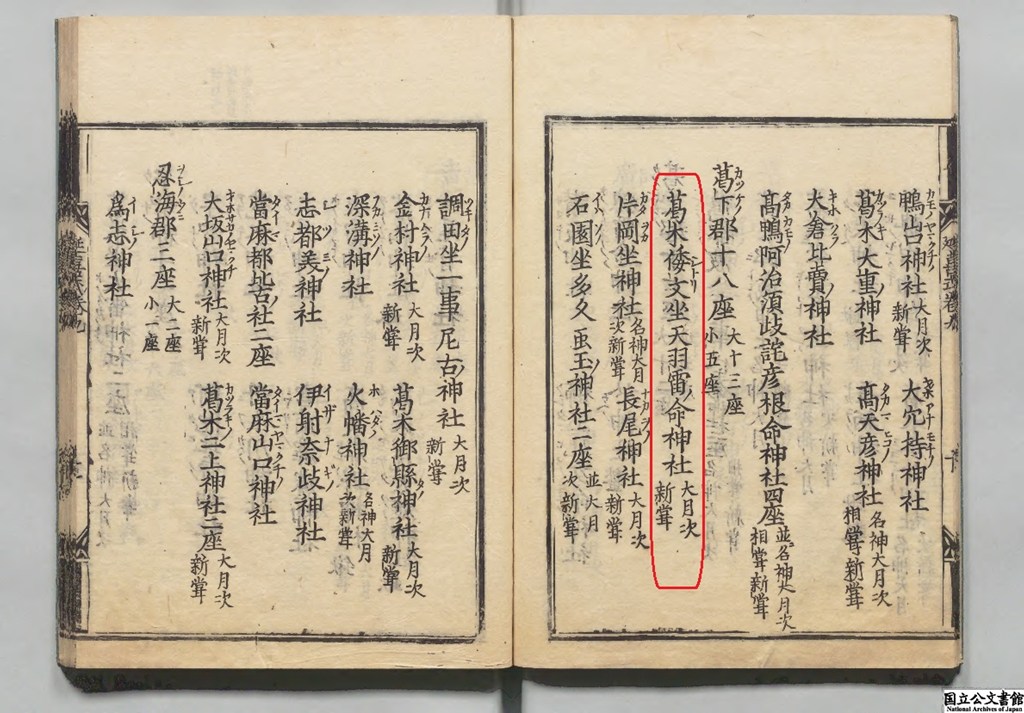 鴨山口神社 大月次新嘗 大穴持神社
葛木大重神社 髙天彦神社 名神大月次相嘗新嘗
大倉比賣神社
髙鴨阿治須歧詫彦根命神社四座 並名神大月次相嘗新嘗
葛下郡十八座 大十三座小五座
葛木倭文坐天羽雷命神社 大月次新嘗
片岡坐神社 名神大月次新嘗 長尾神社 大月次新嘗
石園坐多久虫玉神社二座 並大月次新嘗
調田坐一事尼古神社 大月次新嘗
金村神社 大月次新嘗 葛木御縣神社 大月次新嘗
深溝神社 火幡神社 名神大月次新嘗
志都美神社 伊射奈歧神社
當麻都比古神社二座 當麻山口神社
大坂山口神社 大月次新嘗 葛木二上神社二座 大月次新嘗
忍海郡三座 大二座小一座
為志神社
国立公文書館
National Archives of Japan